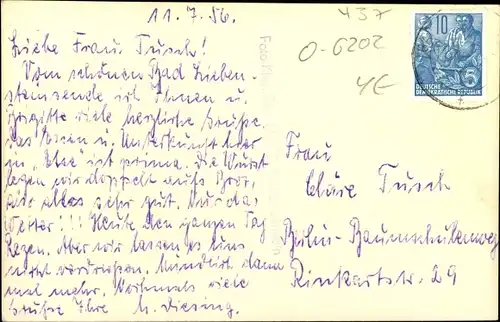 11.7.56.
Liebe Frau Tusch!
Vom schönen Bad Lieben-
stein sende ich Ihnen u.
Brigitte viele herzliche Grüße.
Das Essen u. Unterkunft hier
im "Else" ist prima. Die Wurst
legen wir doppelt aufs Brot,
also alles sehr gut. Nur das
Wetter!!! Heute den ganzen Tag
Regen. Aber wir lassen es uns
nicht verdrießen. dann
mal mehr. Nochmals viele
Grüße Ihre M. Diesing.
437
O-6202
YE
10
5
DEUTSCHE
DEMOKRATISCHE REPUBLIK
Frau
Cläre Tusch
Berlin-Baumschulenweg
Rinkartstr. 29